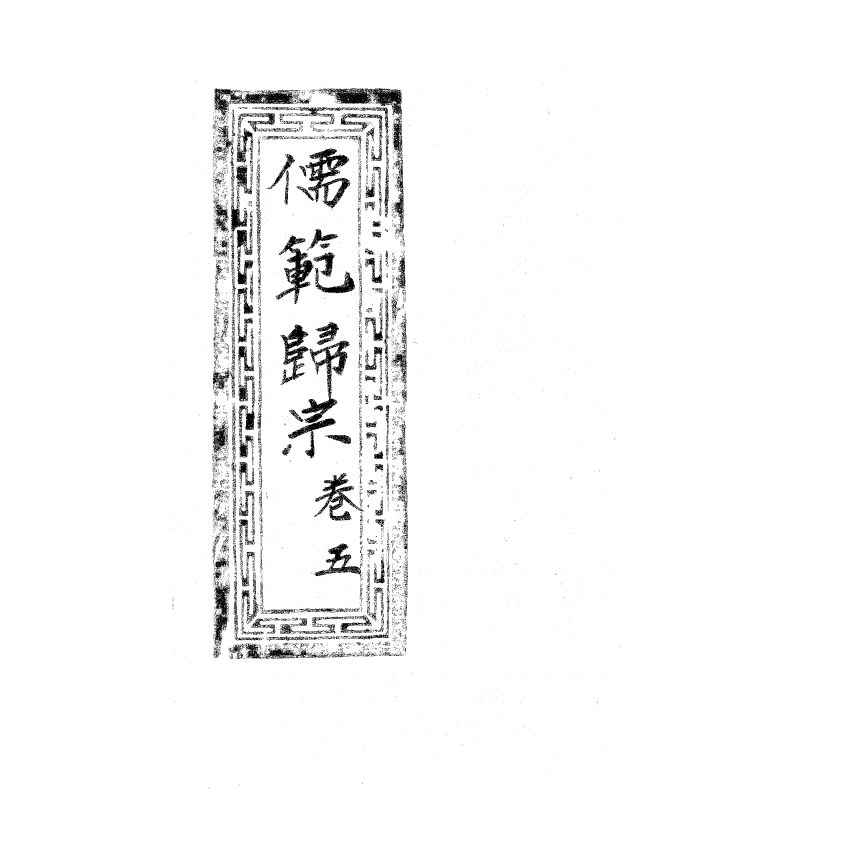 儒範歸宗
卷五